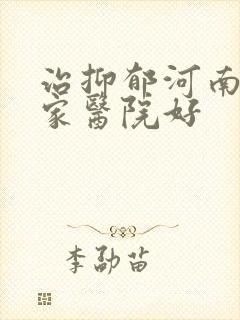 治抑郁河南
家醫院好
李劭苗